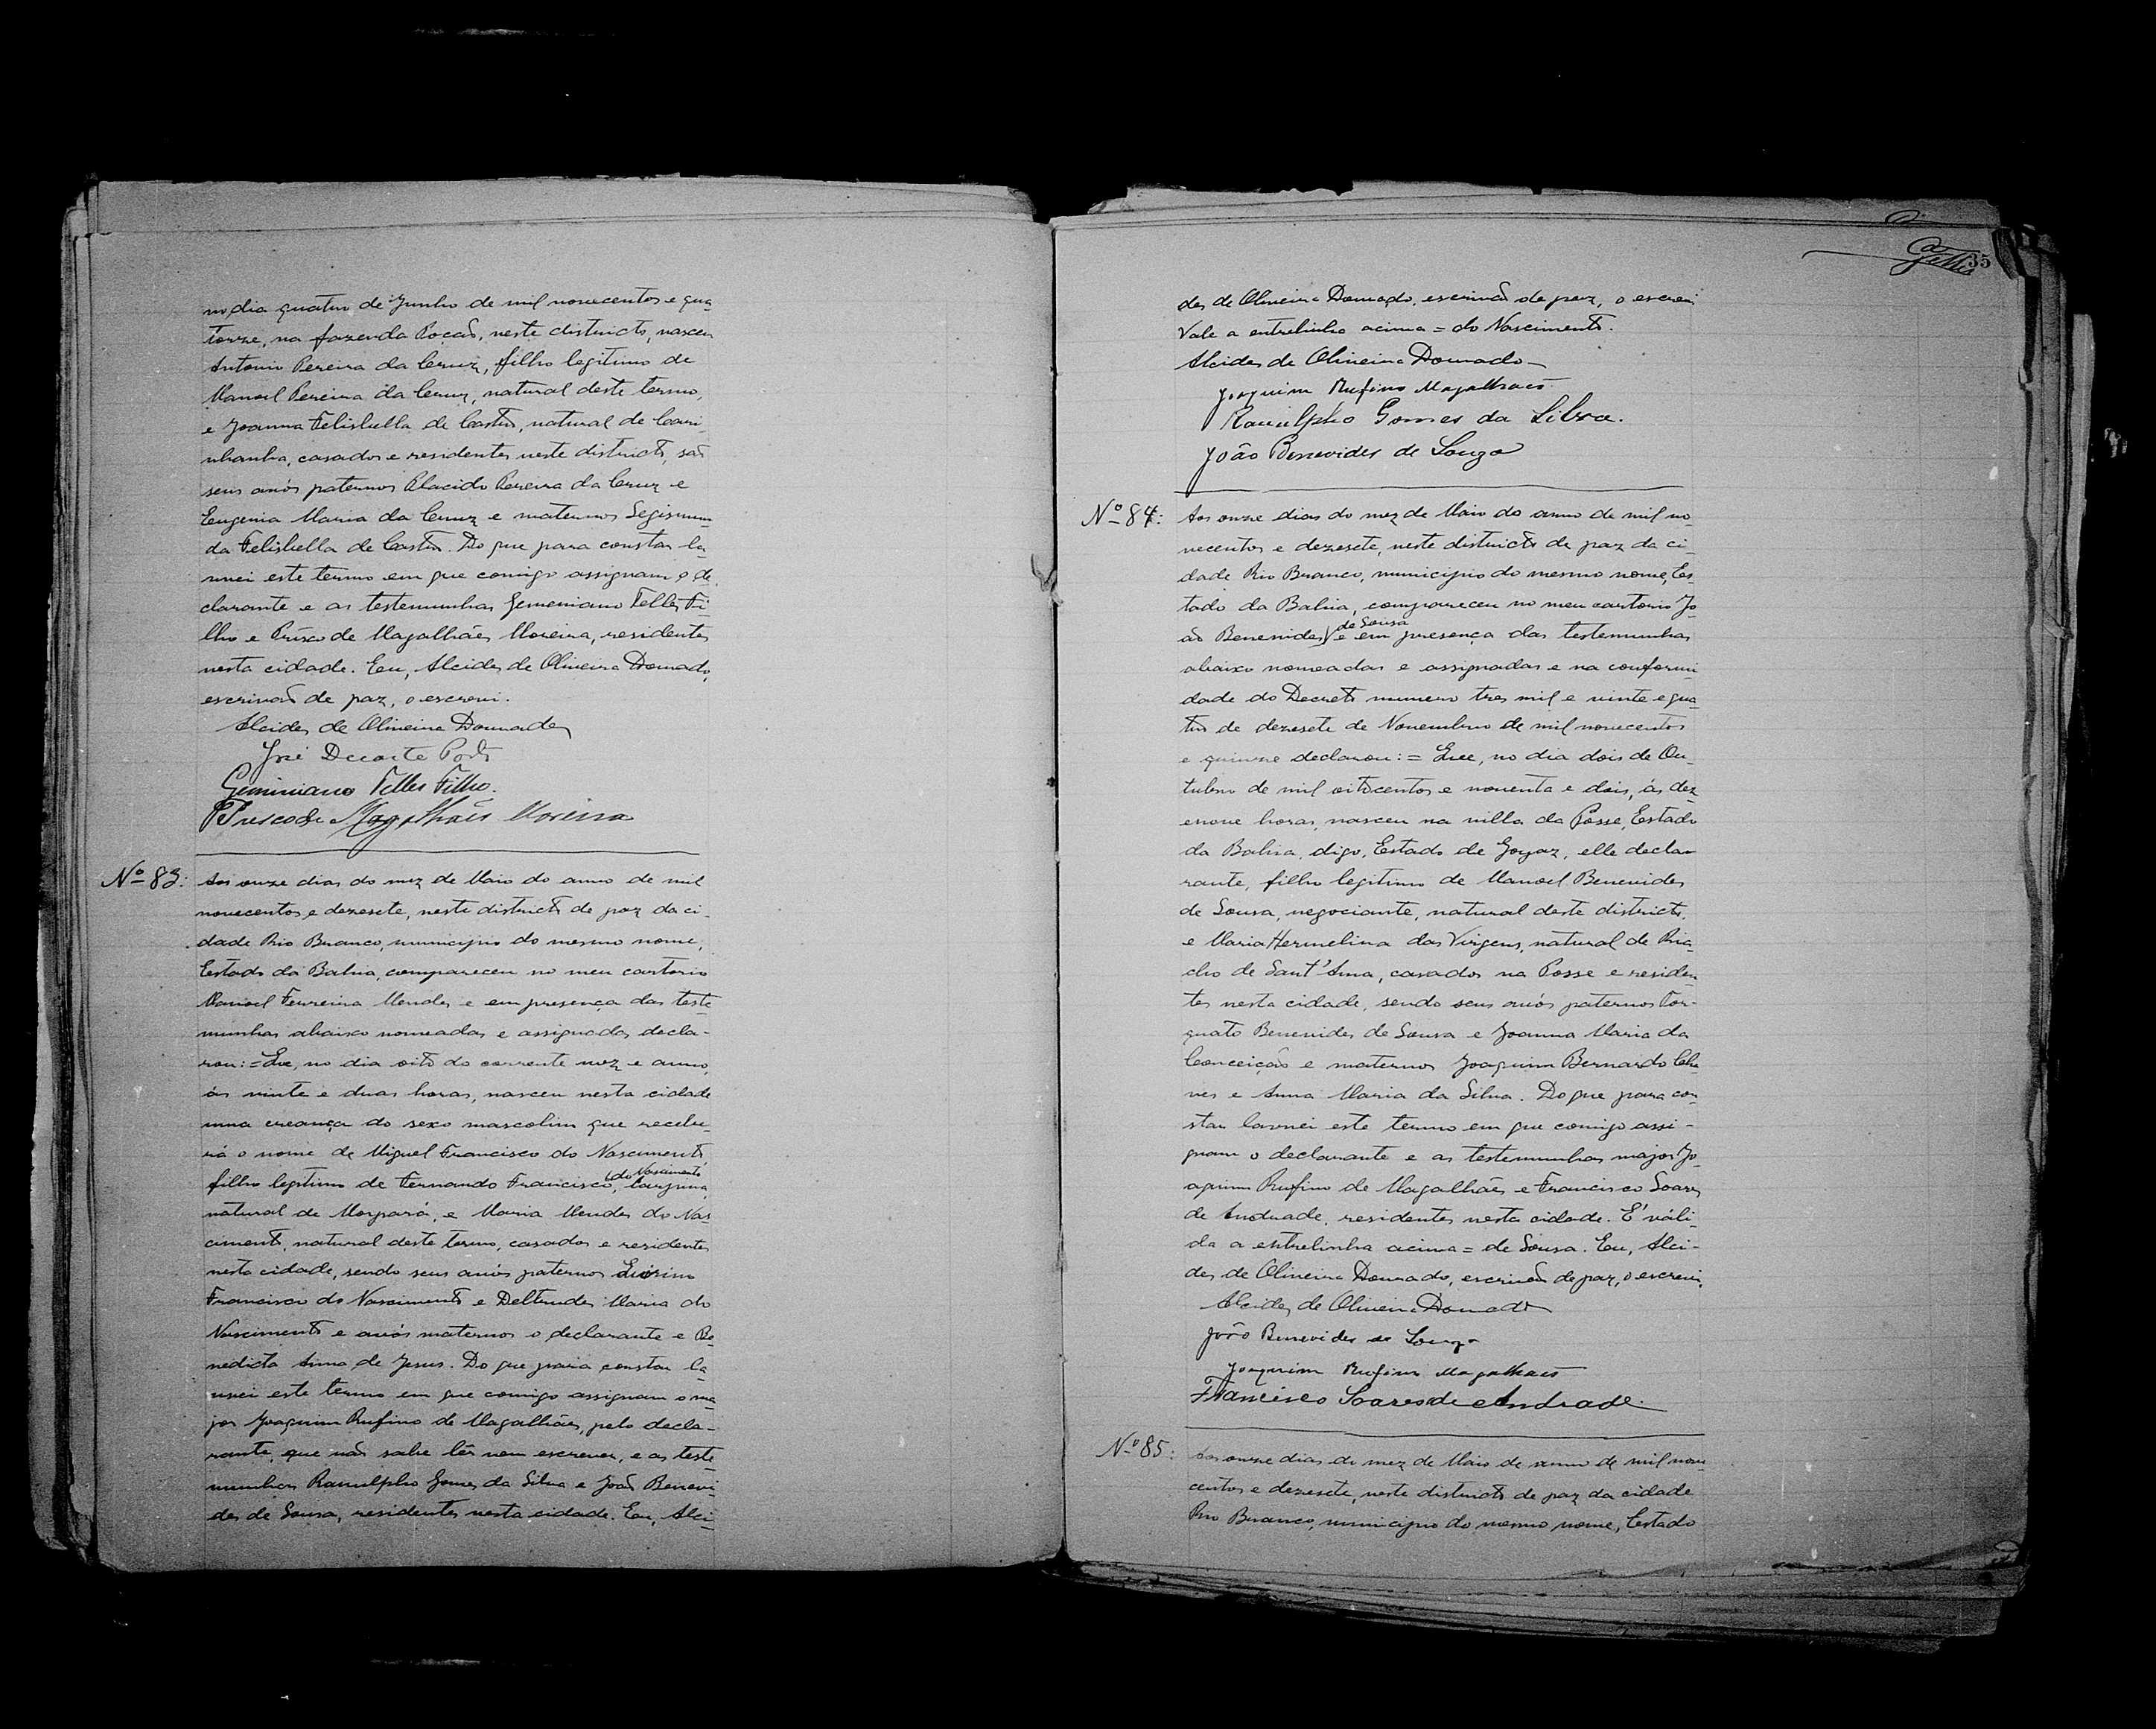 no dia quatro de Junho de mil novecentos e qua-
torze, na fazenda Poção, neste districto, nasceu
Antonio Pereira da Cruz, filho legitimo de
Manoel Pereira da Cruz, natural deste termo,
e Joanna Felisbella de Castro, natural de Cari-
nhanha, casados e residentes neste districto, são
seus avós paternos Placido Pereira da Cruz e
Eugenia Maria da Cruz e maternos Segismun-
da Felisbella de Castro. Do que para constar la-
vrei este termo em que comigo assignam o de-
clarante e as testemunhas Geminiano Telles Fi-
lho e Prisco de Magalhães Moreira, residentes
nesta cidade. Eu, Alcides de Oliveira Dourado,
escrivão de paz, o escrevi.
Alcides de Oliveira Dourado
José Duarte Porto
Geminiano Telles Filho.
Prisco de Magalhães Moreira
Nº 83: Aos onze dias do mez de Maio do anno de mil
novecentos e dezesete, neste districto de paz da ci-
dade Rio Branco, municipio do mesmo nome,
Estado da Bahia, compareceu no meu cartorio
Manoel Ferreira Mendes e em presença das teste-
munhas abaixo nomeadas e assignadas decla-
rou: = Que, no dia oito do corrente mez e anno,
ás vinte e duas horas, nasceu nesta cidade
uma creança do sexo masculino que recebe-
rá o nome de Miguel Francisco do Nascimento
do Nascimento
filho legitimo de Fernando Francisco,
natural de Morpará, e Maria Mendes do Nas-
cimento, natural deste termo, casados e residentes
nesta cidade, sendo seus avós paternos
Francisco do Nascimento e Deltrudes Maria do
Nascimento e avós maternos o declarante e Be-
nedicta Anna de Jesus. Do que para constar la-
vrei este termo em que comigo assignam o ma-
jor Joaquim Rufino de Magalhães, pelo decla-
rante, que não sabe lêr nem escrever, e as teste-
munhas Ranulpho Gomes da Silva e João Benevi-
des de Sousa, residentes nesta cidade. Eu, Alci-
35
des de Oliveira Dourado, escrivão de paz, o escrevi
Vale a entrelinha acima = do Nascimento.
Alcides de Oliveira Dourado
Joaquim Rufino Magalhaes
Ranulpho Gomes da Silva.
João Benevides de Souza
Nº 84: Aos onze dias do mez de Maio do anno de mil no-
vecentos e dezesete, neste districto de paz da ci-
dade Rio Branco, municipio do mesmo nome, Es-
tado da Bahia, compareceu no meu cartorio Jo-
de Sousa
ão Benevides e em presença das testemunhas
abaixo nomeadas e assignadas e na conformi-
dade do Decreto numero tres mil e vinte e qua-
tro de dezesete de Novembro de mil novecentos
e quinze declarou: = Que, no dia dois de Ou-
tubro de mil oitocentos e noventa e dois, ás dez-
enove horas, nasceu na villa da Posse, Estado
da Bahia, digo, Estado de Goyaz, elle decla-
rante, filho legitimo de Manoel Benevides
de Sousa, negociante, natural deste districto,
e Maria Hermelina das Virgens, natural de Ria-
cho de Sant'Anna, casados na Posse e residen-
tes nesta cidade, sendo seus avós paternos Tor-
quato Benevides de Sousa e Joanna Maria da
Conceição e maternos Joaquim Bernardo Cha-
ves e Anna Maria da Silva. Do que para con-
star lavrei este termo em que comigo assi-
gnam o declarante e as testemunhas major Jo-
aquim Rufino de Magalhães e Francisco Soares
de Andrade, residentes nesta cidade. É váli-
da a entrelinha acima = de Sousa. Eu, Alci-
des de Oliveira Dourado, escrivão de paz, o escrevi.
Alcides de Oliveira Dourado
João Benevides de Souza
Joaquim Rufino Magalhaes
Francisco Soares de Andrade.
Nº 85: Aos onze dias do mez de Maio de anno de mil nove-
centos e dezesete, neste districto de paz da cidade
Rio Branco, municipio do mesmo nome, Estado